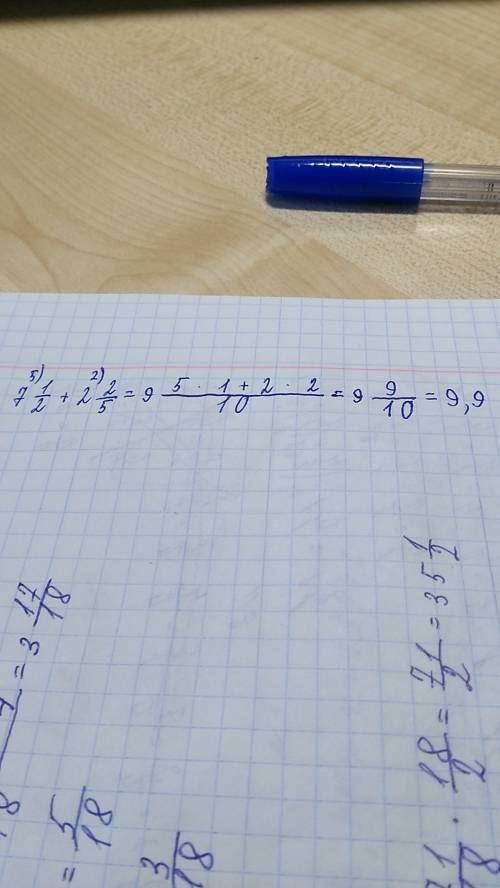 7 5) 1/2 + 2 2) 2/5 = 9 (5 · 1 + 2 · 2)/10 = 9 9/10 = 9,9
= 3 17/18
= 5/18
3/18
· 18/2 = 71/2 = 35 1/2